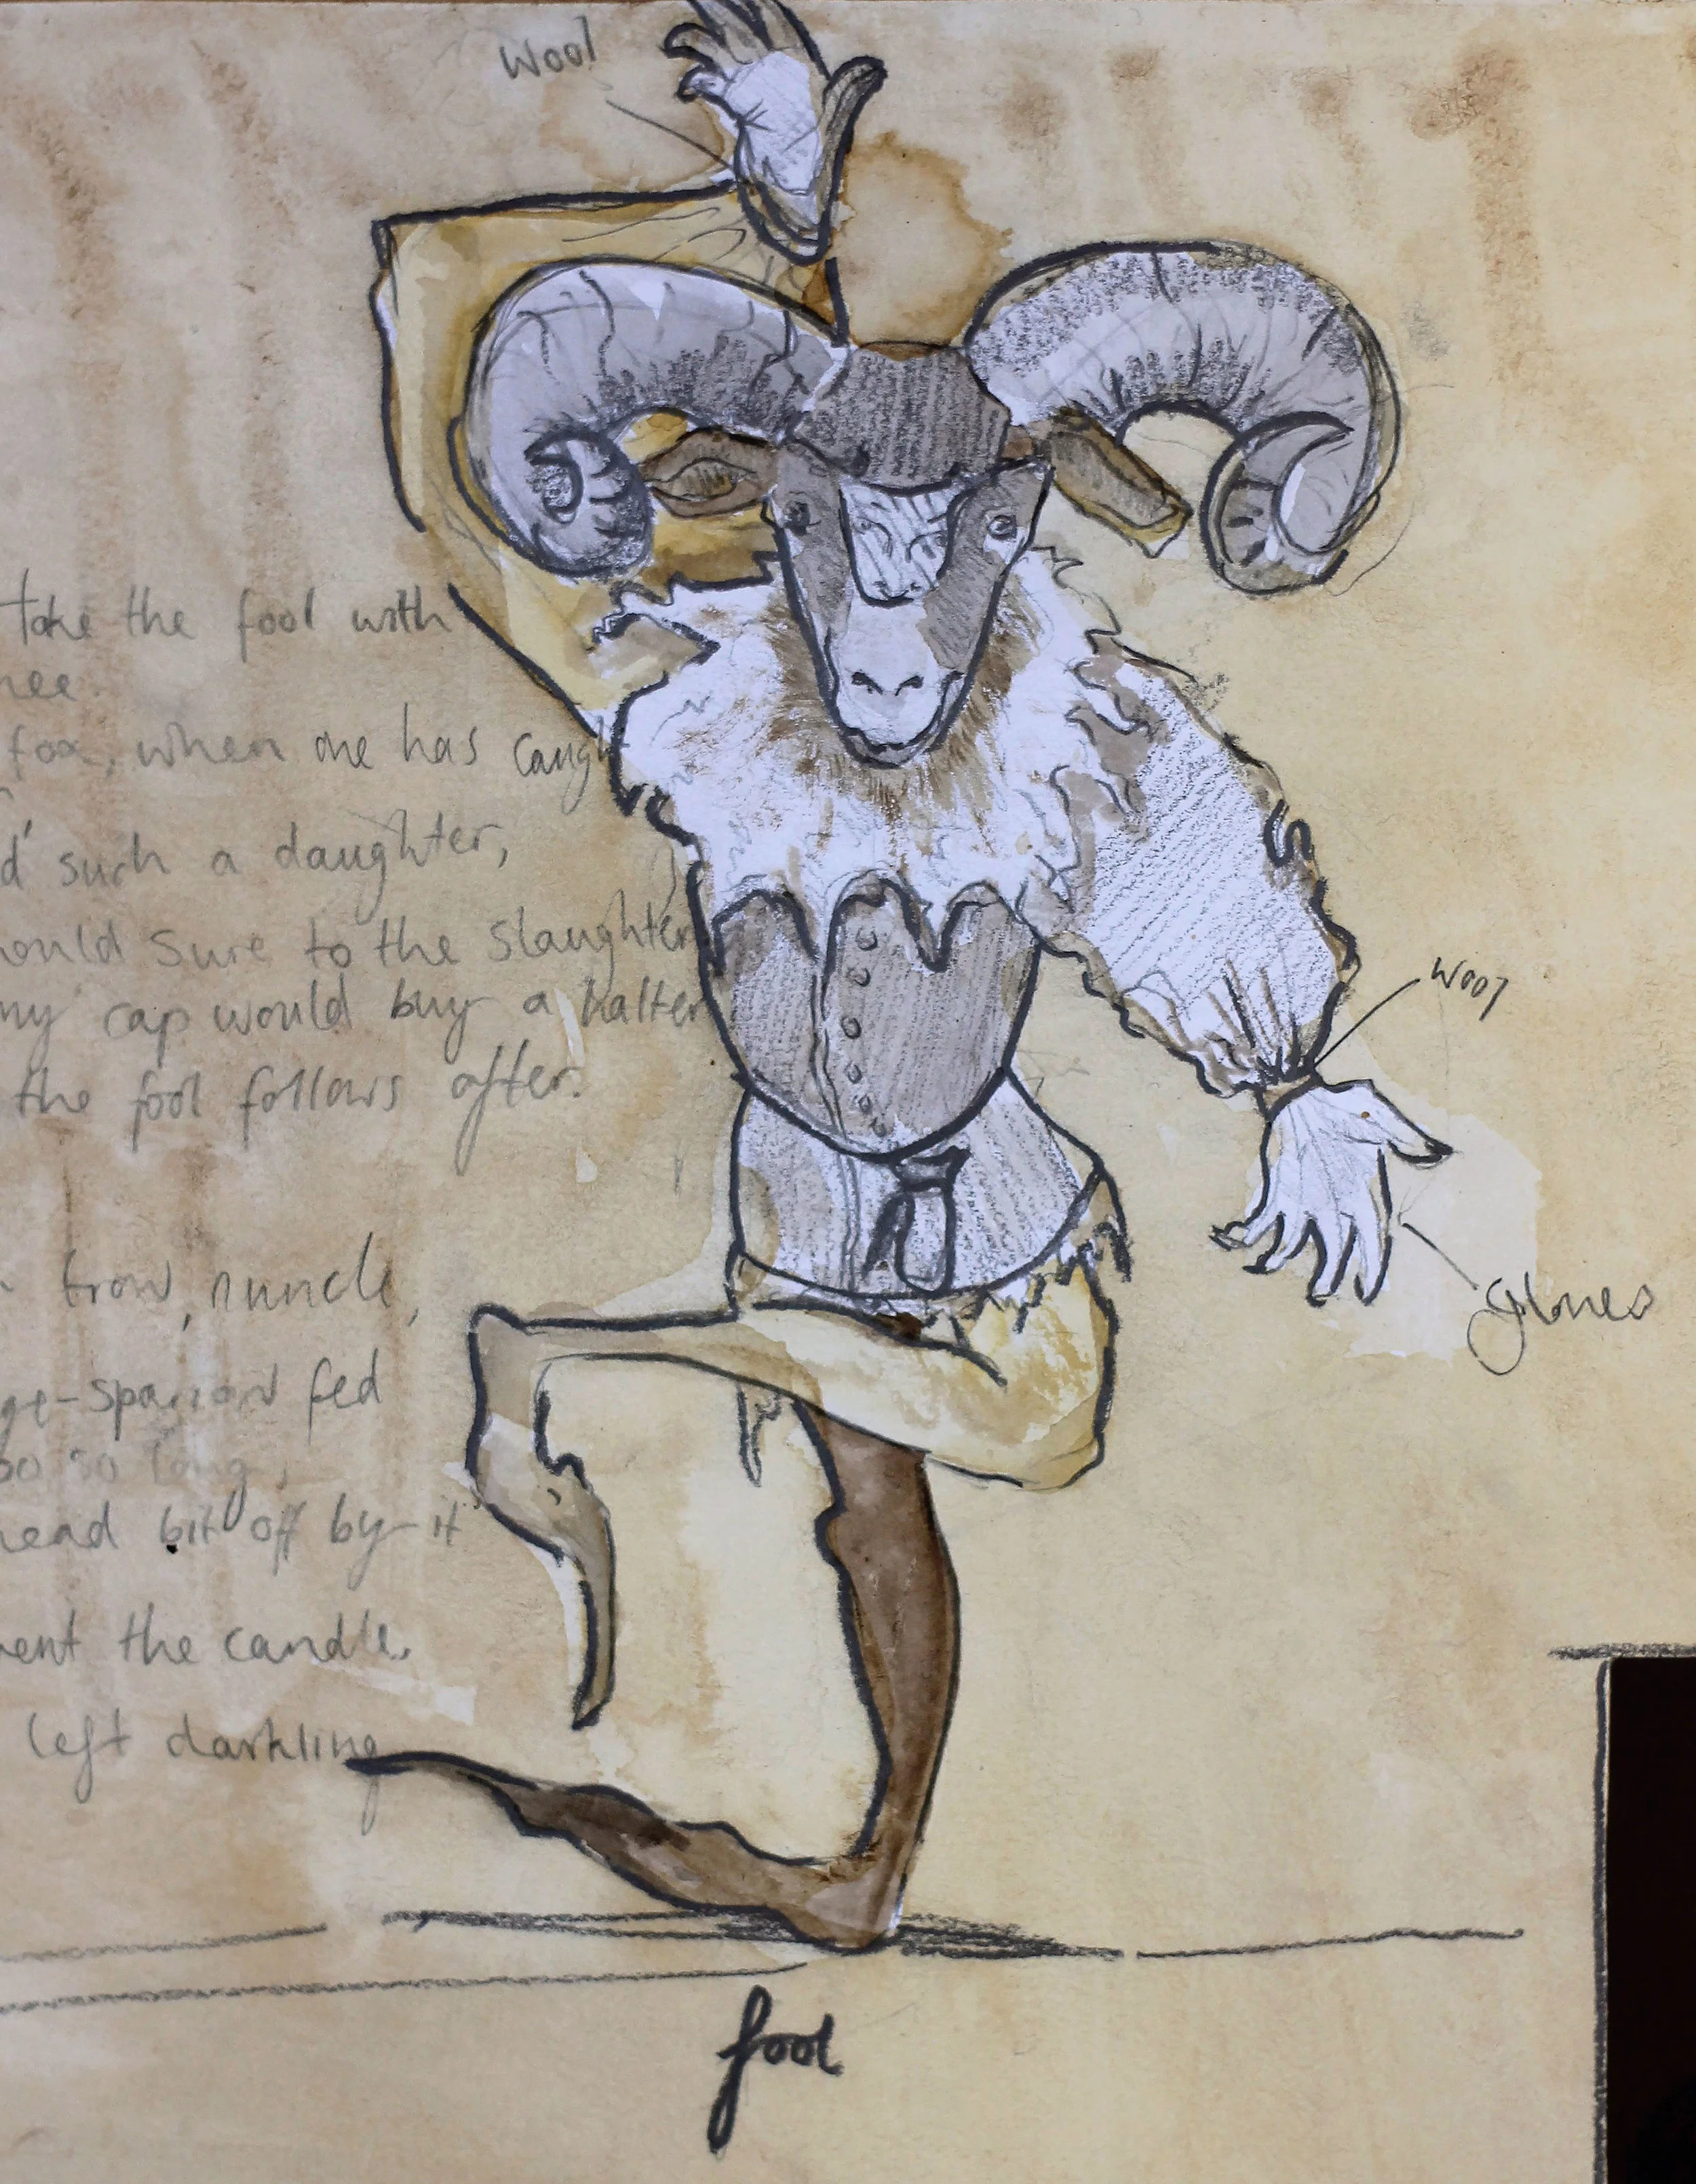 Wool
take the fool with
hee.
fox, when one has caugh
d such a daughter,
hould sure to the slaughter
my cap would buy a halter
the fool follows after.
wool
gloves
trow, nuncle,
ge-sparrow fed
so long,
head bit off by it
ent the candle,
left darkling
fool